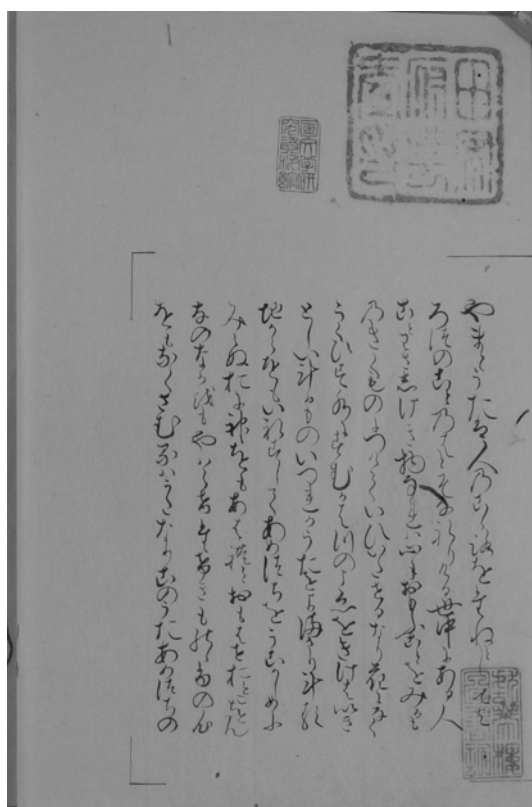 田安
府芸
台印
国文学研
究資料館
やまとうたは人のこゝろをたねとして
ろつのことのはとそなれりける世中にある人
ことわさしけき物なれは心におもふことをみも
のきくものにつけていひいたせるなり花になく
うくひす水にすむかはつのこゑをきけはいき
としいけるものいつれかうたをよまさりける
地からをもいれすしてあめつちをうこかしめに
みえぬおに神をもあはれとおもはせおとこをん
なのなかをもやはらけたけきものゝふの心
をもなくさむるはうたなりこのうたあめつちの
献英楼
図書記